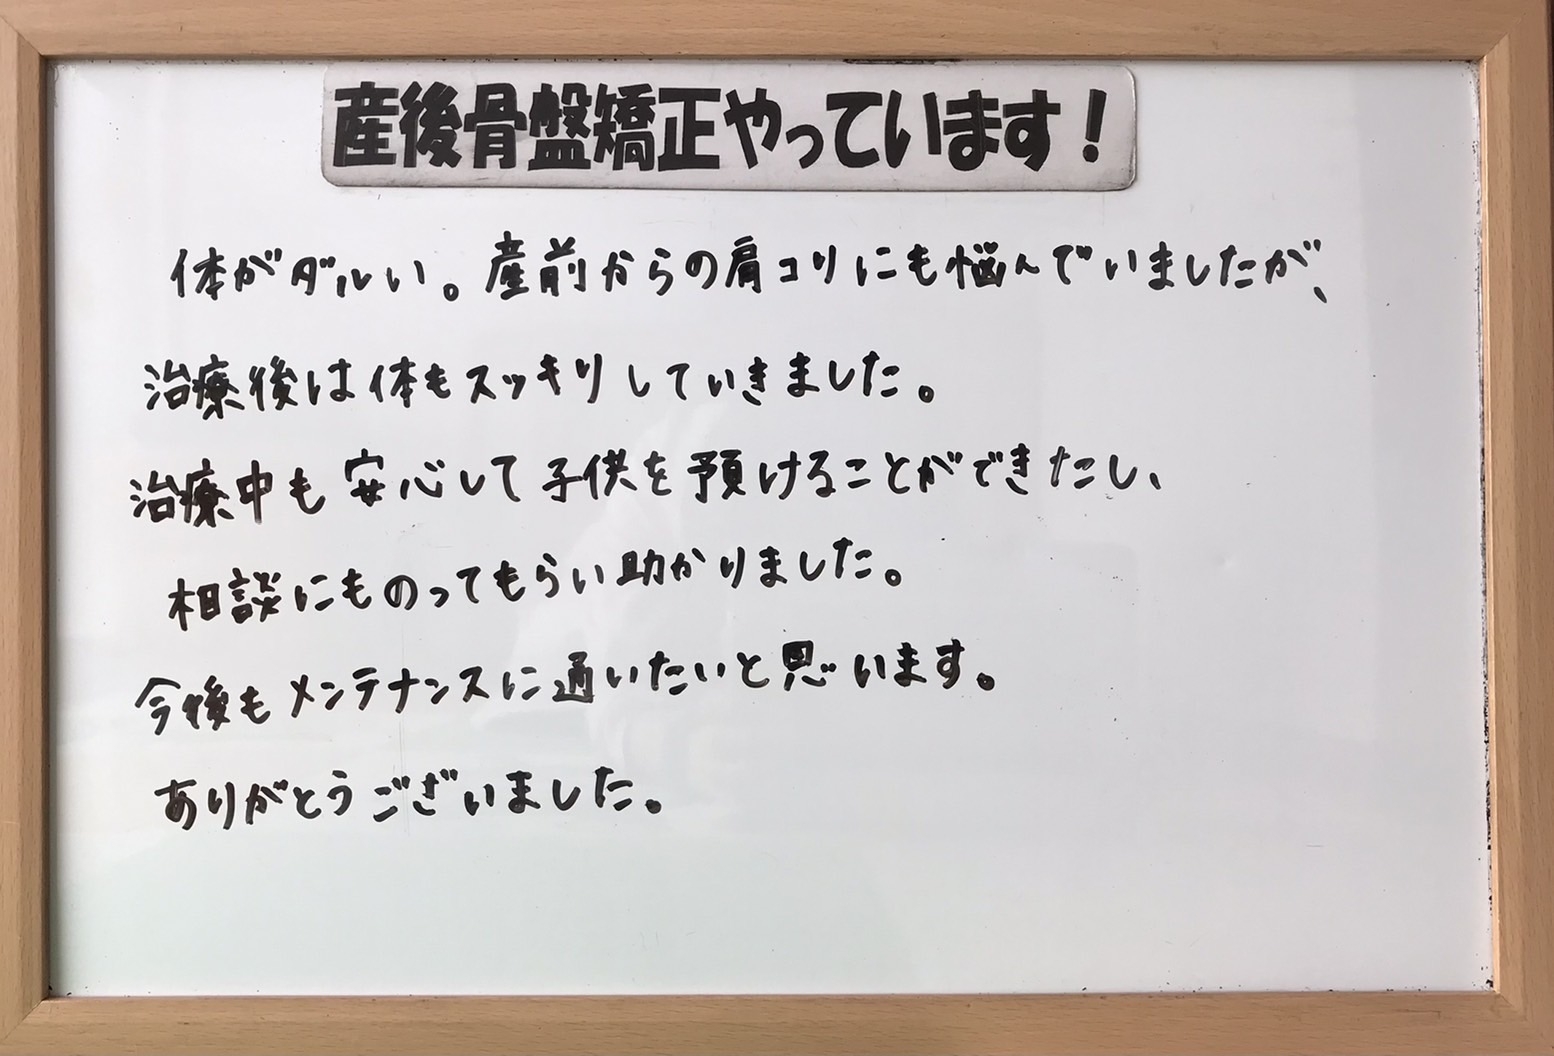 産後骨盤矯正やっています！
体がダルい。産前からの肩コリにも悩んでいましたが、
治療後は体もスッキリしていきました。
治療中も安心して子供を預けることができたし、
相談にものってもらい助かりました。
今後もメンテナンスに通いたいと思います。
ありがとうございました。